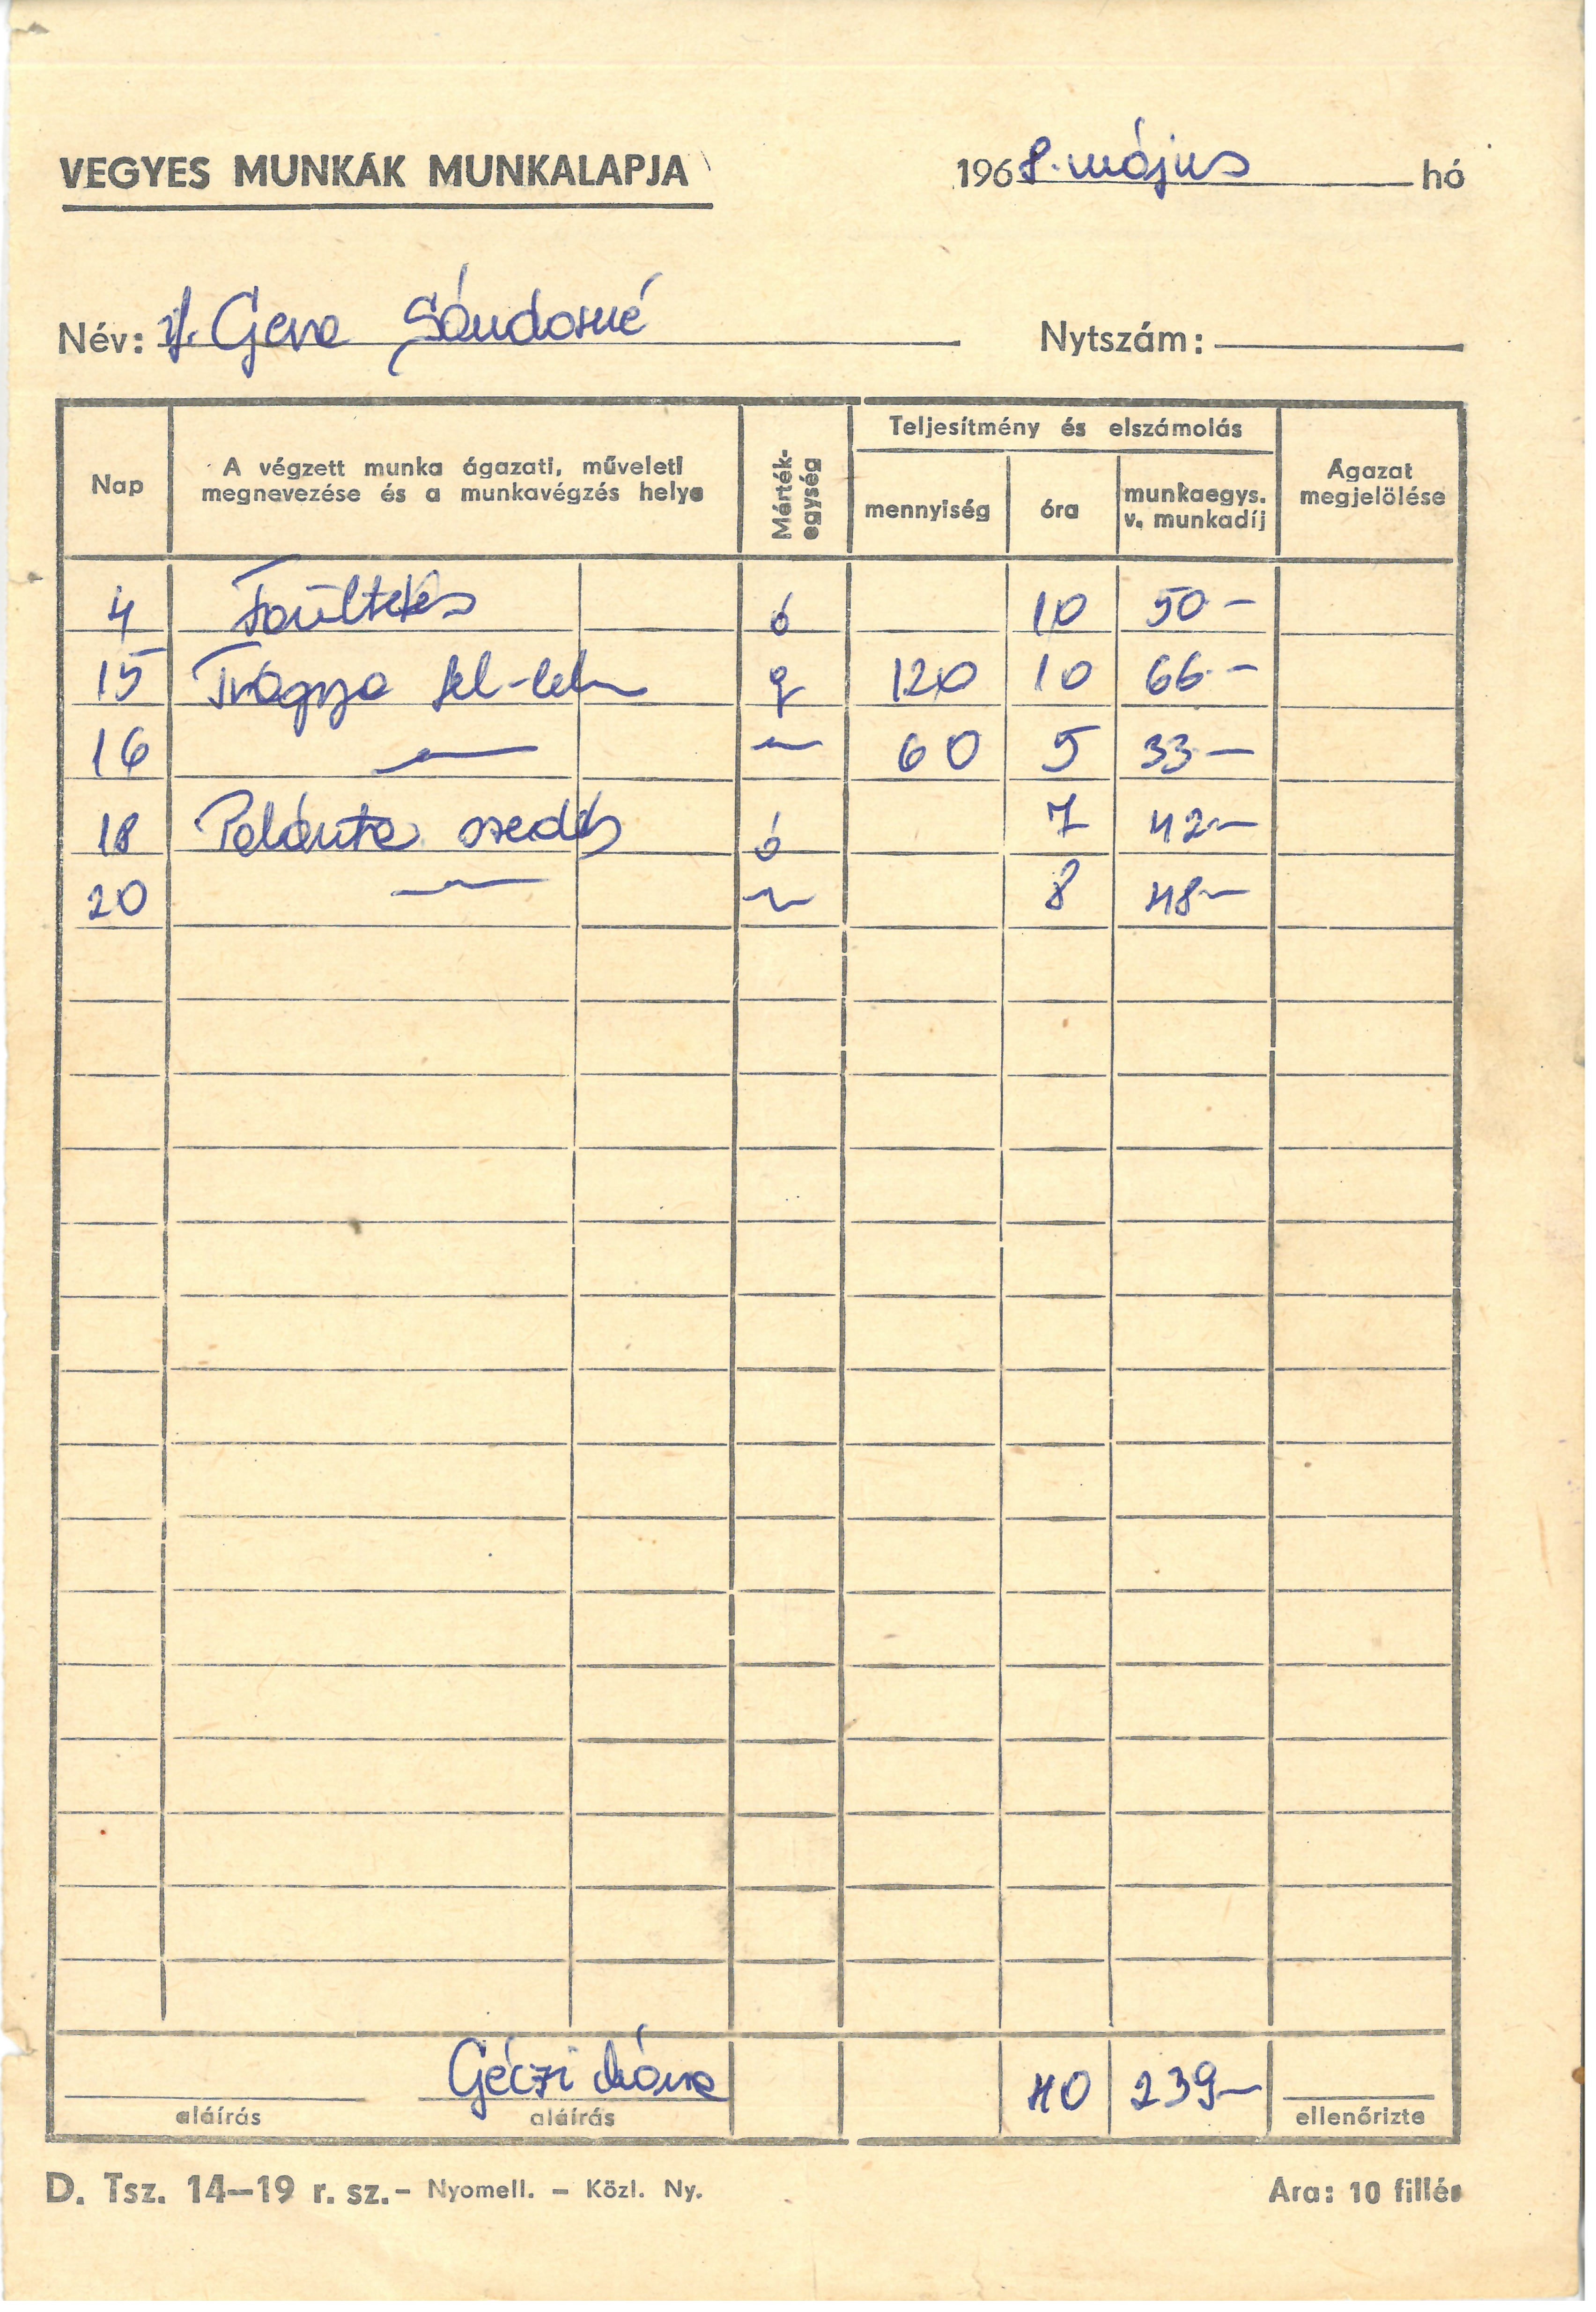 VEGYES MUNKÁK MUNKALAPJA 1968. május hó
Név: if. Geva Sándorné Nytszám:
Nap A végzett munka ágazati, műveleti megnevezése és a munkavégzés helye Mérték-egység Teljesítmény és elszámolás mennyiség óra munkaegys. v. munkadíj Agazat megjelölése
4 ó 10 50 –
15 Trágya fel-lek q 120 10 66 –
16 — — 60 5 33 –
18 Palánta szedés ó 7 42 –
20 — — 8 48 –
Géczi 40 239 –
aláírás aláírás ellenőrizte
D. Tsz. 14—19 r. sz. – Nyomell. – Közl. Ny. Ara: 10 fillér